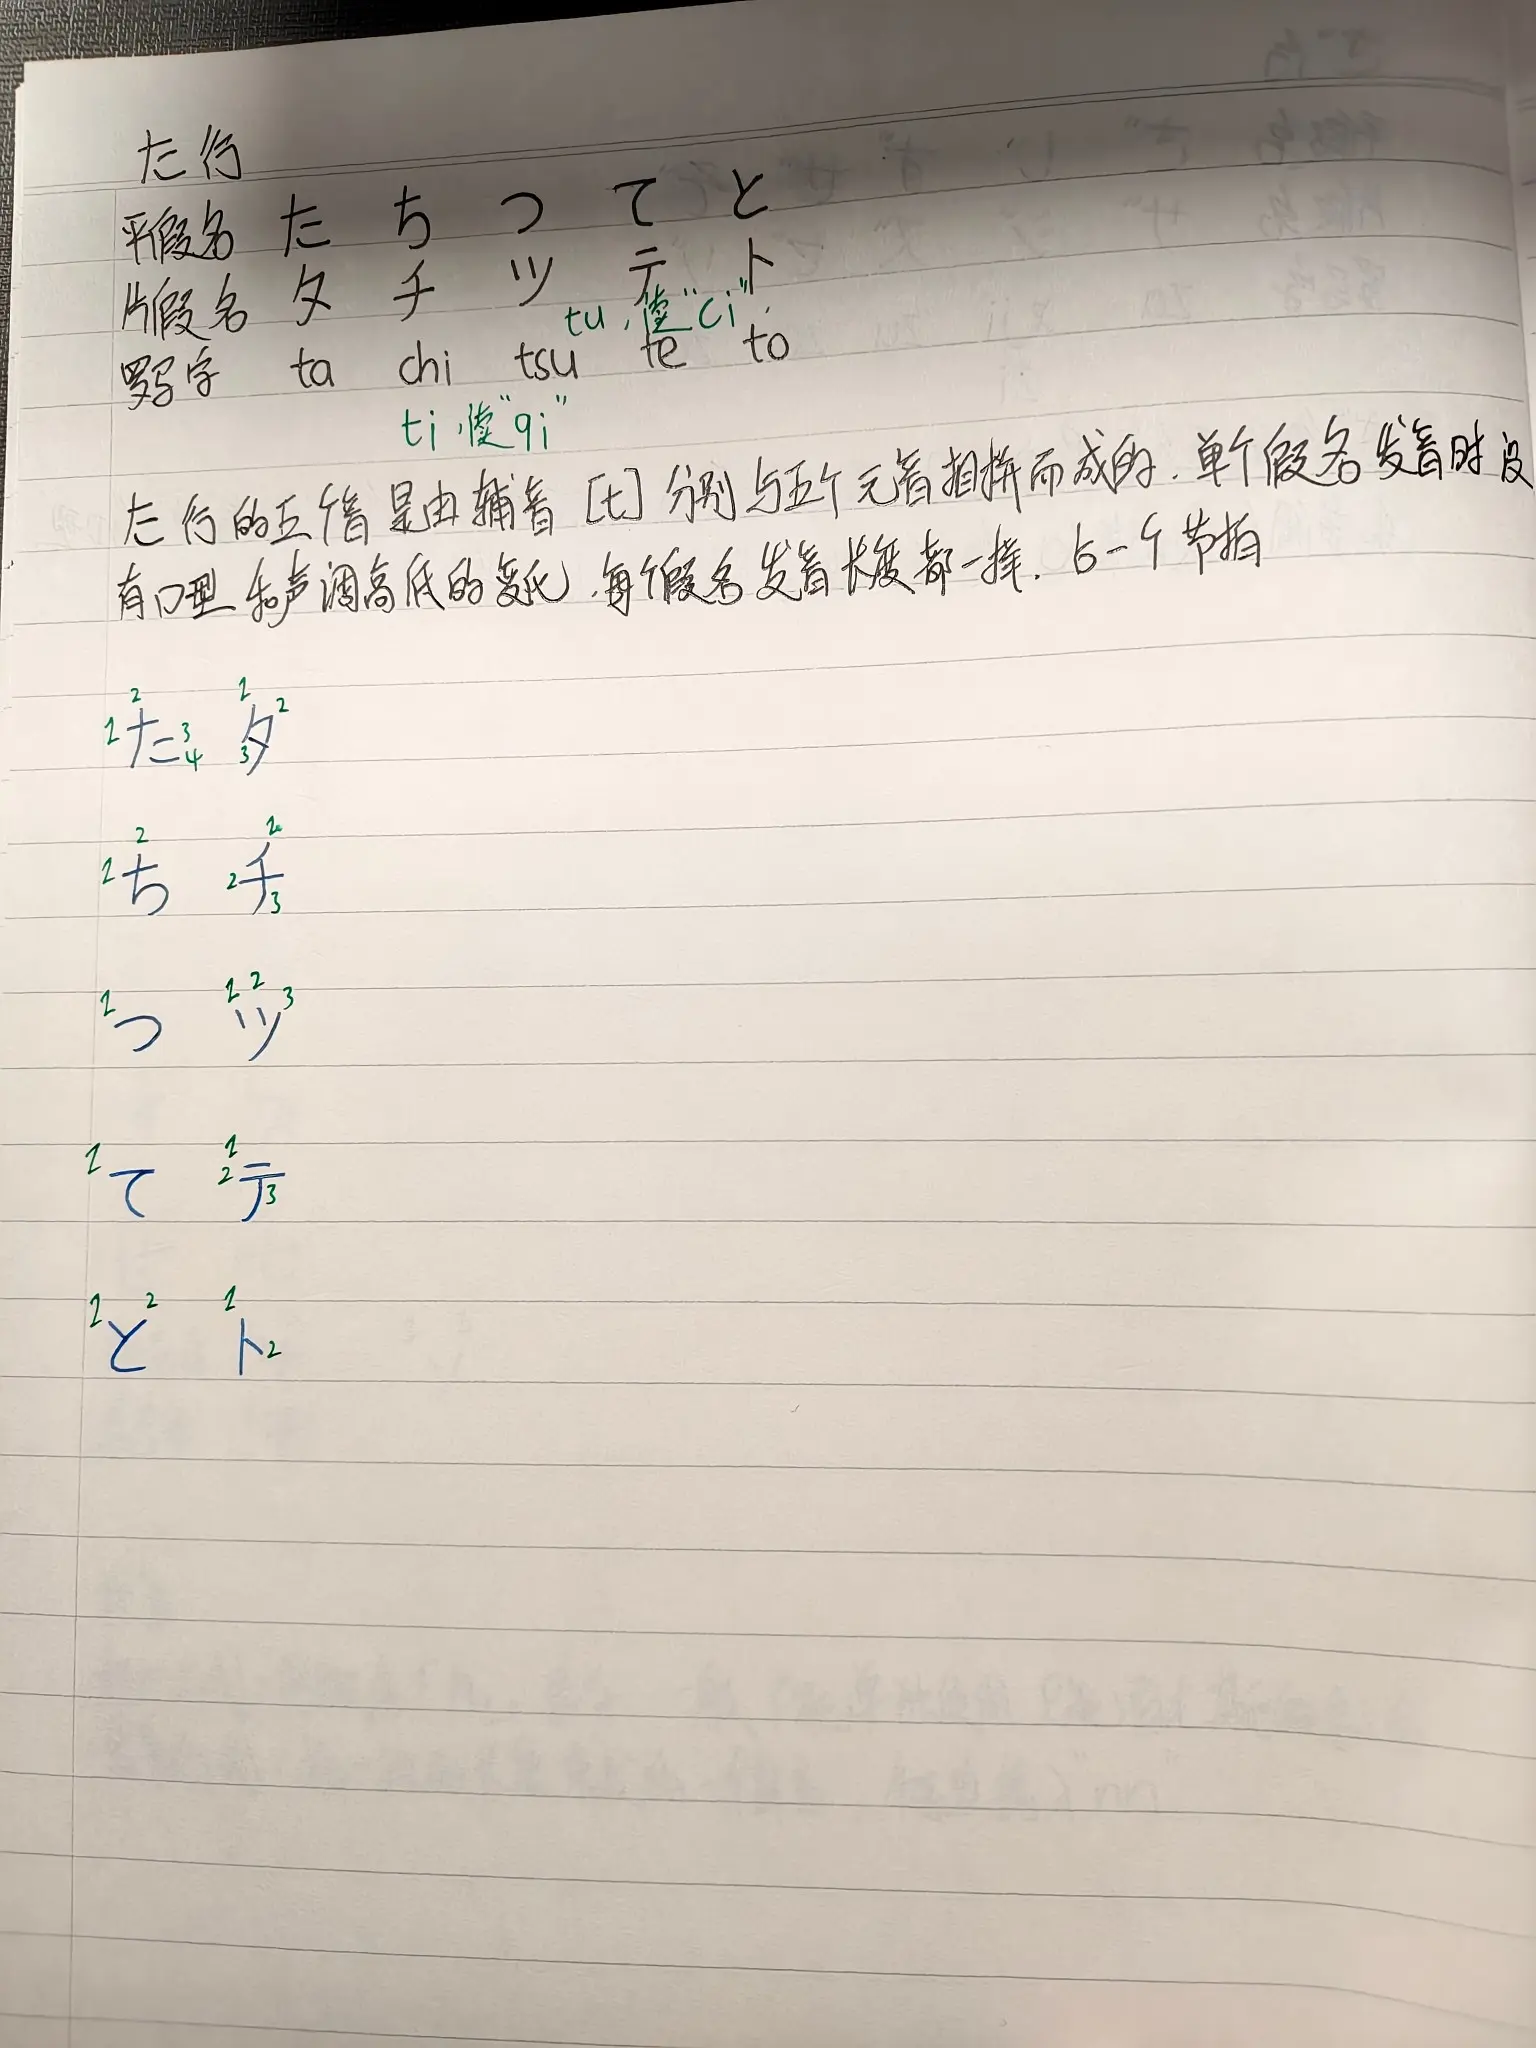 た行
平假名 た ち つ て と
片假名 タ チ ツ テ ト
tu,读"ci",
罗马字 ta chi tsu te to
ti,读"qi"
た行的五个音是由辅音[t]分别与五个元音相拼而成的.单个假名发音时没
有口型和声调高低的变化,每个假名发音长度都一样.占一个节拍
1 2 た 3 4 1 2 タ 3
1 2 ち 1 2 チ 3
1 つ 1 2 3 ツ
1 て 1 2 テ 3
1 と 2 1 ト 2